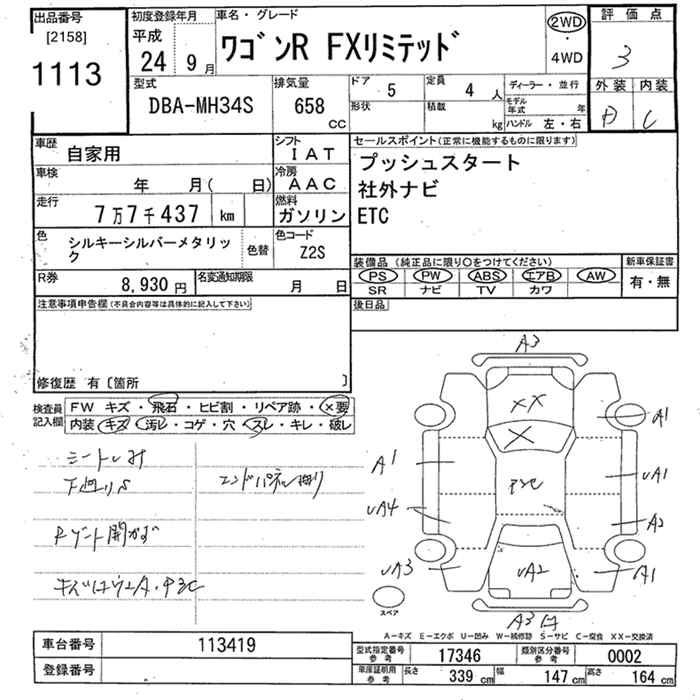 出品番号
[2158]
1113
初度登録年月
平成
24 9月
車名・グレード
ワゴンR FXリミテッド
2WD
・
4WD
評価点
3
外装 内装
D C
型式
DBA-MH34S
排気量
658
CC
ドア 5
形状
定員 4 人
積載 kg
ディーラー・並行
モデル年式 年
ハンドル 左・右
車歴
自家用
シフト
IAT
車検
年 月( 日)
冷房
AAC
走行
7万7千437 km
燃料
ガソリン
色
シルキーシルバーメタリック
色替
色コード
Z2S
R券
8,930 円
名変通知期限
月 日
セールスポイント(正常に機能するものに限ります)
プッシュスタート
社外ナビ
ETC
装備品(純正品に限り〇をつけてください)
PS PW ABS エアB AW
SR ナビ TV カワ
新車保証書
有・無
後日品
注意事項申告欄(不具合内容等は具体的に記入して下さい)
修復歴 有〔箇所 〕
検査員記入欄
FW キズ・飛石・ヒビ割・リペア跡・×要
内装 キズ・汚レ・コゲ・穴・スレ・キレ・破レ
シートシミ
下廻りS
エンドパネル
A3
XX
A1
X
A1
UA1
UA4
A2
UA3
UA2
A1
A3
スペア
A-キズ E-エクボ U-凹み W-補修跡 S-サビ C-腐食 XX-交換済
車台番号 113419
登録番号
型式指定番号参考 17346
類別区分番号参考 0002
車庫証明用参考 長さ 339 cm 幅 147 cm 高さ 164 cm